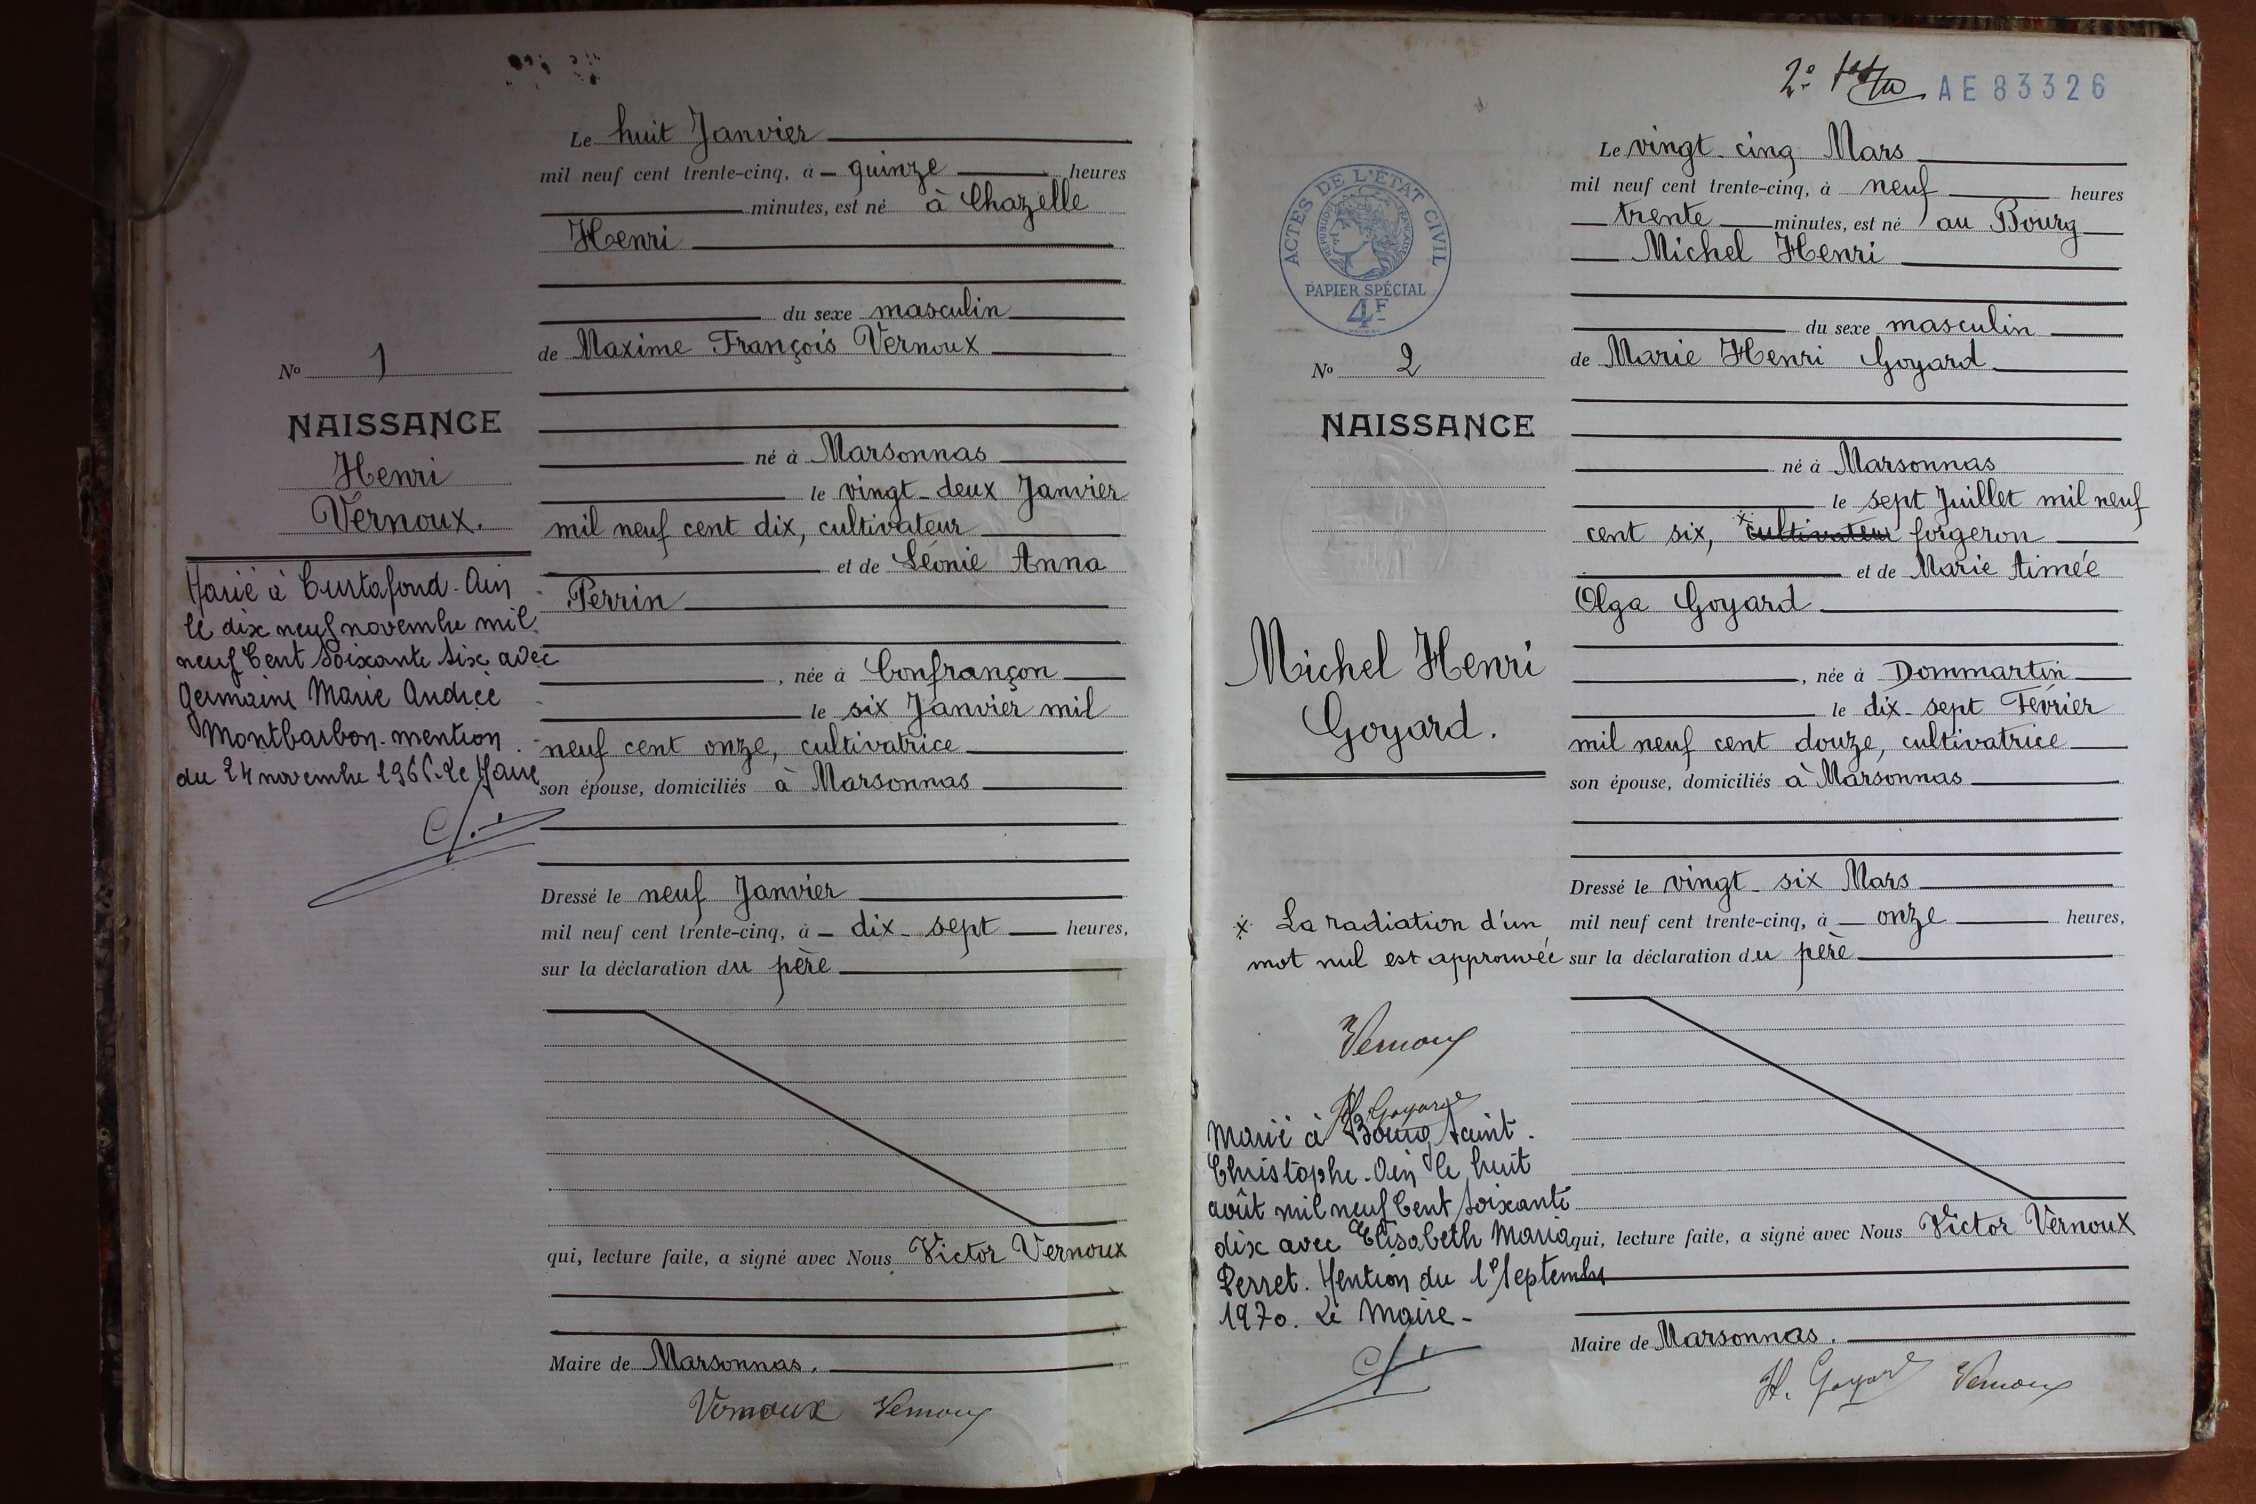 Le huit Janvier
mil neuf cent trente-cinq, à quinze heures
minutes, est né à Chazelle
Henri
du sexe masculin
de Maxime François Vernoux
né à Marsonnas
le vingt-deux Janvier
mil neuf cent dix, cultivateur
et de Léonie Anna
Perrin
, née à Confrançon
le six Janvier mil
neuf cent onze, cultivatrice
son épouse, domiciliés à Marsonnas
Dressé le neuf Janvier
mil neuf cent trente-cinq, à dix-sept heures,
sur la déclaration du père
qui, lecture faite, a signé avec Nous Victor Vernoux
Maire de Marsonnas.
Vernoux Vernoux
No 1
NAISSANCE
Henri
Vernoux.
Marié à Curtafond-Ain
le dix neuf novembre mil
neuf Cent Soixante six avec
Germaine Marie Andrée
Montbarbon-mention
du 24 novembre 1966. Le Maire
2e
AE 83326
ACTES DE L'ÉTAT CIVIL
RÉPUBLIQUE FRANÇAISE
PAPIER SPÉCIAL
4F
Le vingt-cinq Mars
mil neuf cent trente-cinq, à neuf heures
trente minutes, est né au Bourg
Michel Henri
du sexe masculin
de Marie Henri Goyard
né à Marsonnas
le sept Juillet mil neuf
cent six, x cultivateur forgeron
et de Marie Aimée
Olga Goyard
, née à Dommartin
le dix-sept Février
mil neuf cent douze, cultivatrice
son épouse, domiciliés à Marsonnas
Dressé le vingt-six Mars
mil neuf cent trente-cinq, à onze heures,
sur la déclaration du père
qui, lecture faite, a signé avec Nous Victor Vernoux
Maire de Marsonnas.
H. Goyard Vernoux
No 2
NAISSANCE
Michel Henri
Goyard.
x La radiation d'un
mot nul est approuvée
Vernoux
H. Goyard
Marié à Bourg Saint
Christophe-Ain le huit
août mil neuf Cent Soixante
dix avec Elisabeth Maria
Perret. Mention du 1e Septembre
1970. Le Maire-